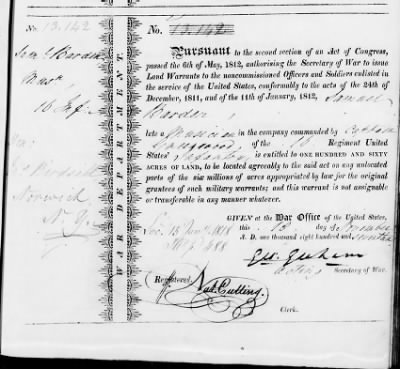 No. 13,142
No. 13,142
Musn
16 Inf.
Norwich
N. Y.
WAR DEPARTMENT.
Pursuant to the second section of an Act of Congress,
passed the 6th of May, 1812, authorising the Secretary of War to issue
Land Warrants to the noncommissioned Officers and Soldiers enlisted in
the service of the United States, conformably to the acts of the 24th
of December, 1811, and of the 11th of January, 1812, Samuel
Barden
late a Musician in the company commanded by Captain
of the 16 Regiment United
States' Infantry is entitled to ONE HUNDRED AND SIXTY
ACRES OF LAND, to be located agreeably to the said act on any unlocated
parts of the six millions of acres appropriated by law for the original
grantees of such military warrants; and this warrant is not assignable
or transferable in any manner whatever.
GIVEN at the War Office of the United States,
this 13 day of November
A. D. one thousand eight hundred and
Geo. Graham
Acting Secretary of War.
Registered,
Nat. Cutting.
Clerk.